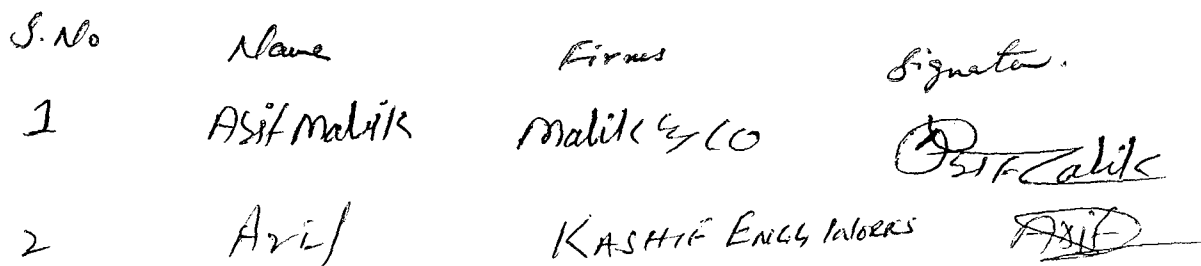 S.No Name Firms Signatur.
1 Asif Malik Malik & CO Asif Malik
2 Arif KASHIF ENGG WORKS Arif